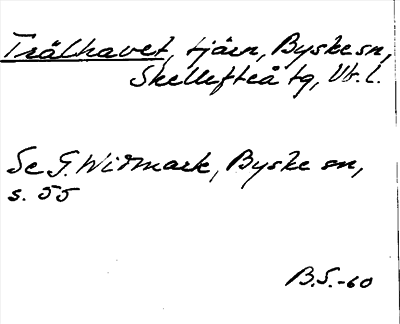 Trälhavet, tjärn, Byske sn,
Skellefteå tg, Vb. l.
Se G. Widmark, Byske sn,
s. 55
B.S.-60